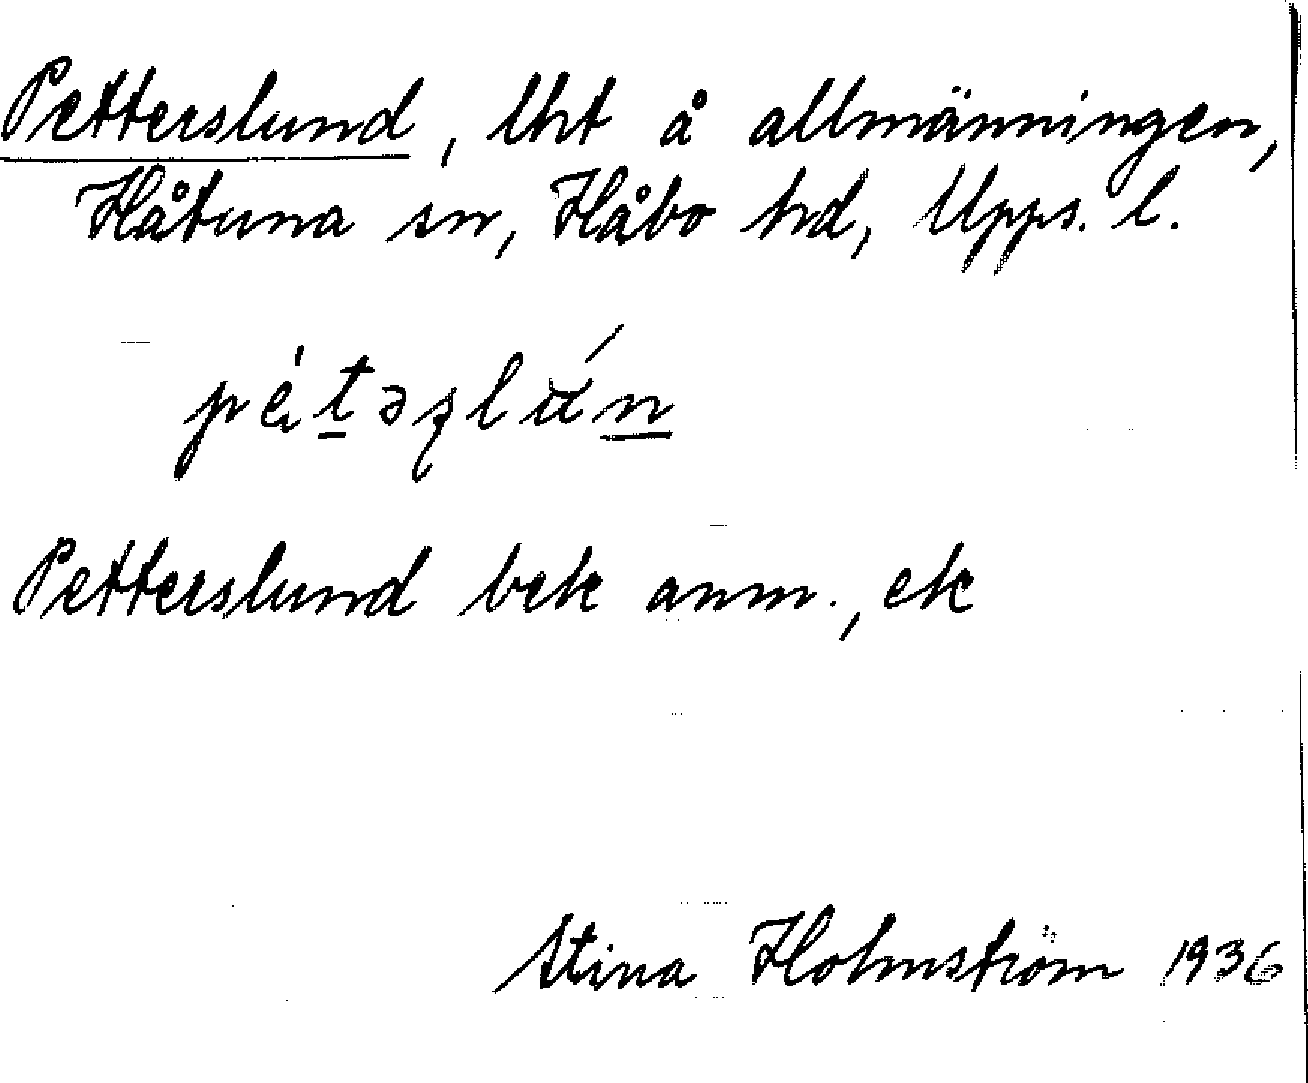 Petterslund, lht å allmänningen,
Håtuna sn, Håbo hd, Upps. l.
pètəʂlɯ́n
Petterslund bek anm., ek
Stina Holmström 1936